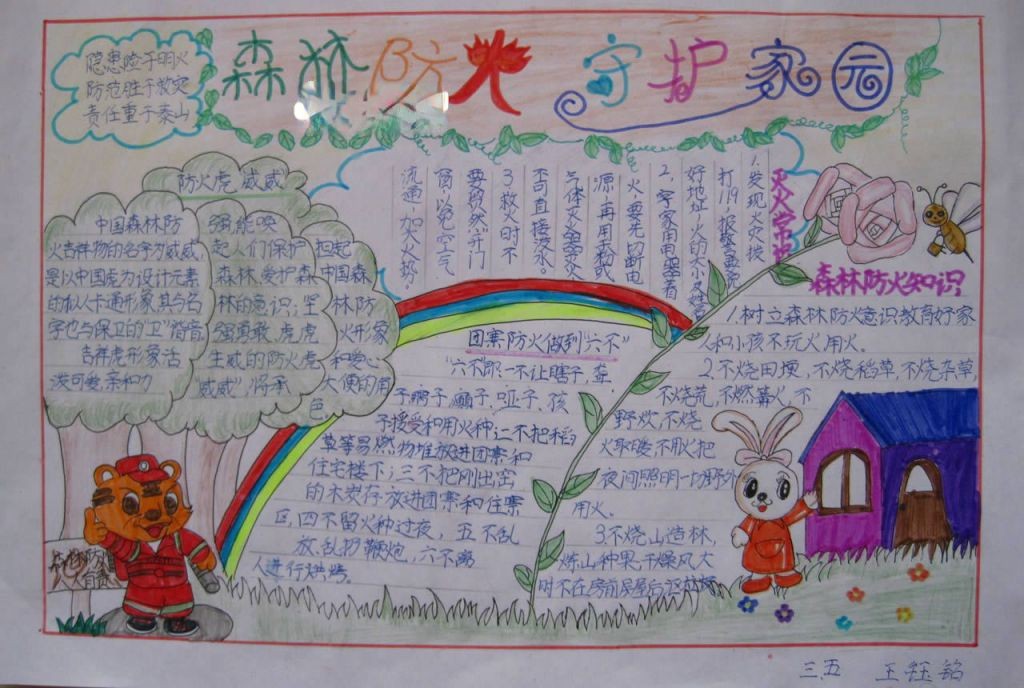 森林防火 守护家园
隐患险于明火
防范胜于救灾
责任重于泰山
防火虎 威威
中国森林防
火吉祥物的名字为威威,
是以中国虎为设计元素
的拟人卡通形象其与名
字也与保卫的"卫"谐音,
吉祥虎形象活
泼可爱亲和力
强,能唤
起人们保护
森林,爱护森
林的意识;坚
强勇敢,虎虎
生威的防火虎
威威",将承
担起
中国森
林防
火形象
和爱心
大使的角
色
灭火常识
1.发现火灾拨
打119报警要说
好地址,火的大小及姓
2,家用电器着
火,要先切断电
源,再用
气体灭火器灭火
不可直接泼水。
3救火时不
要贸然开门
窗以免空气
流通,加大火势。
团寨防火做到六不"
"六不"即一不让瞎子,聋
子,痴子,癫子、哑子、孩
子接受和用火种;二不把稻
草等易燃物堆放进团寨和
住宅楼下;三不把刚出窑
的木炭存放进团寨和住寨
区,四不留火种过夜,五不乱
放、乱扔鞭炮,六不离
人进行烘烤。
森林防火知识
1.树立森林防火意识教育好家
人和小孩不玩火用火。
2.不烧田埂,不烧稻草,不烧杂草
不烧荒,不燃篝火,不
野炊,不烧
火取暖不用火把
夜间照明一切野外
用火。
3.不烧山造林,
炼山种果,干燥风大
时不在房前屋后
三.五 王钰铭